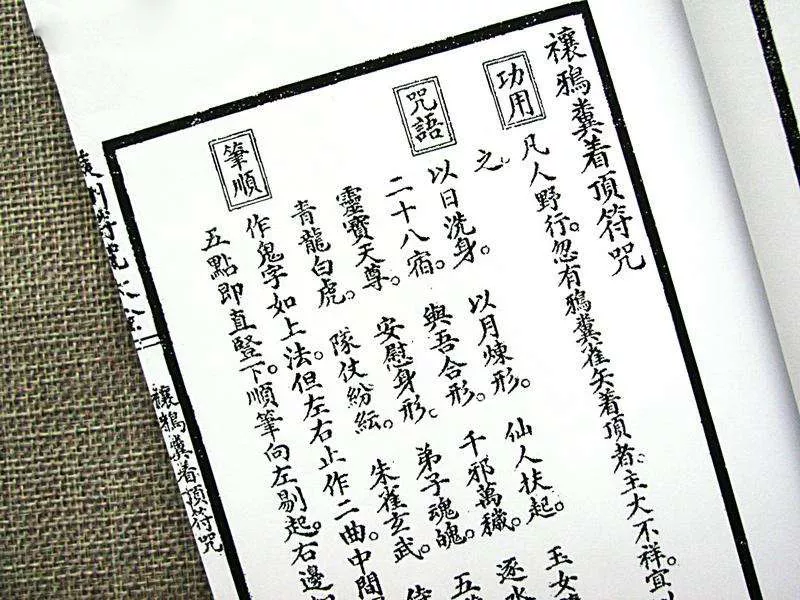 禳鴉糞着頂符咒
功用
凡人野行。忽有鴉糞雀矢着頂者。主大不祥宜
之。
咒語
以日洗身。以月煉形。仙人扶起。玉女
二十八宿。與吾合形。千邪萬穢。逐水
靈寶天尊。安慰身形。弟子魂魄。五
青龍白虎。隊仗紛紜。朱雀玄武。
筆順
作鬼字如上法。但左右止作二曲。中間
五點即直豎下。順筆向左剔起。右邊
符咒大全
禳鴉糞着頂符咒